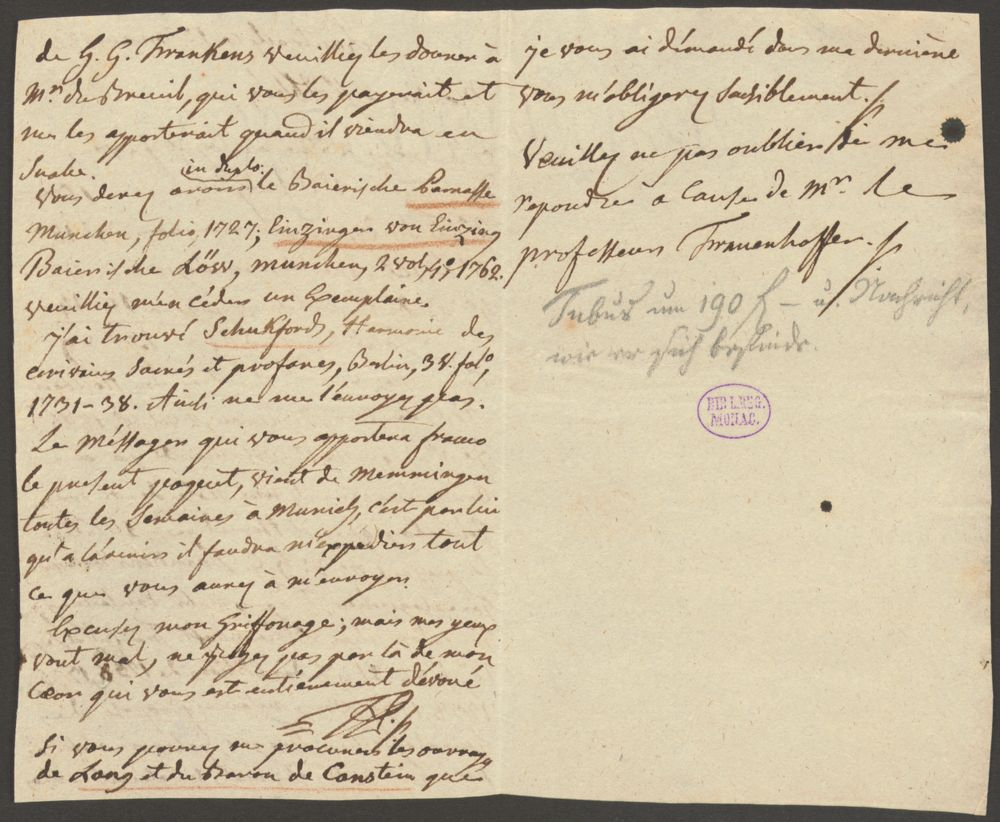 de G. G. Frankens veuilliez les donner à
Mr. du Breuil, qui vous les payerait et
me les apporterait quand il viendra en
Suabe.
in duplo.
Vous devez avoir le Baierische Parnasse
Munchen, folio, 1727; Einzinger von Einzing
Baierische Löw, munchen, 2 vol. 4º, 1762.
veuilliez m'en céder un Exemplaire.
j'ai trouvé Schukfords, Harmonie des
ecrivains Sacrés et profanes, Berlin, 3 V. folº,
1731-38. Ainsi ne me l'envoyez pas.
Le Méssager qui vous apportera franco
le present paquet, vient de Memmingen
toutes les Semaines à Munich, c'est par lui
qu'a l'avenir il faudra m'expedier tout
ce que vous aurez à m'envoyer.
Excusez mon Griffonage; mais mes yeux
vont mal, ne jugez pas par là de mon
Cœur qui vous est entiérement dévoué
Si vous pouvez me procurer les ouvrages
de Lang et du Baron de Canstein que
je vous ai démandé dans ma derniére
vous m'obligerez Sensiblement.
Veuilley ne pas oublier de me
repondre à cause de Mr. le
professeur Frauenhoffer.
Tubus um 190 f – u. Nachricht,
wie er sich befinde.
BIBL. REG.
MONAC.